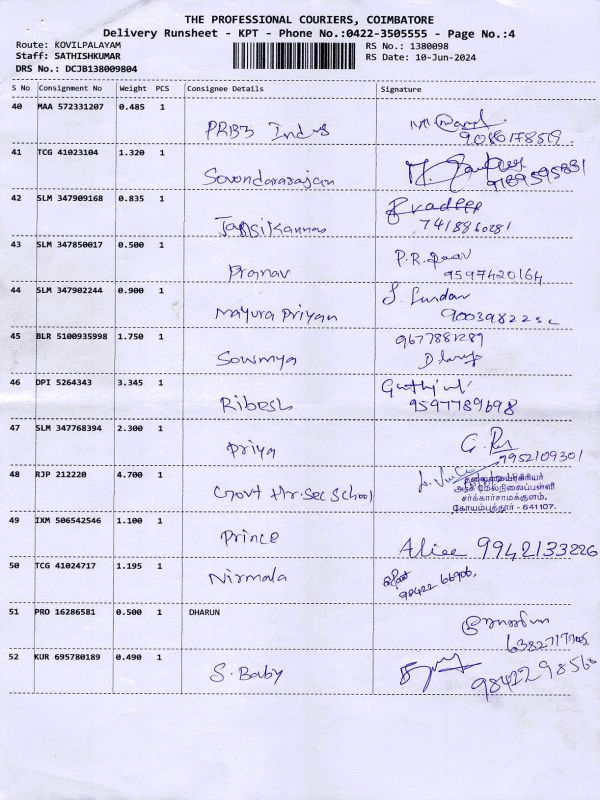 THE PROFESSIONAL COURIERS, COIMBATORE
Delivery Runsheet - KPT - Phone No.:0422-3505555 - Page No.:4
Route: KOVILPALAYAM RS No.: 1380098
Staff: SATHISHKUMAR RS Date: 10-Jun-2024
DRS No.: DCJB138009804
S No Consignment No Weight PCS Consignee Details Signature
40 MAA 572331207 0.485 1
PRB3 Indus
41 TCG 41023104 1.320 1
Sovondararajan 9189595831
42 SLM 347909168 0.835 1 Pradeep
Jansikannan 7418860281
43 SLM 347850017 0.500 1 P.R.
Pranav 9597420164
44 SLM 347902244 0.900 1 S. Sundar
Mayura Priyan
45 BLR 5100935998 1.750 1 9677881289
Sowmya
46 DPI 5264343 3.345 1
Ribesh 9597789698
47 SLM 347768394 2.300 1
Priya 7952109301
48 RJP 212220 4.700 1 தலைமையாசிரியர்
Govt Hr.Sec School அரசு மேல்நிலைப்பள்ளி
சர்க்கார்சாமக்குளம்.
கோயம்புத்தூர் - 641107.
49 IXM 506542546 1.100 1
Prince Alice 9942133226
50 TCG 41024717 1.195 1
Nirmala 98422 66906
51 PRO 16286581 0.500 1 DHARUN
52 KUR 695780189 0.490 1
S. Baby 9842298568